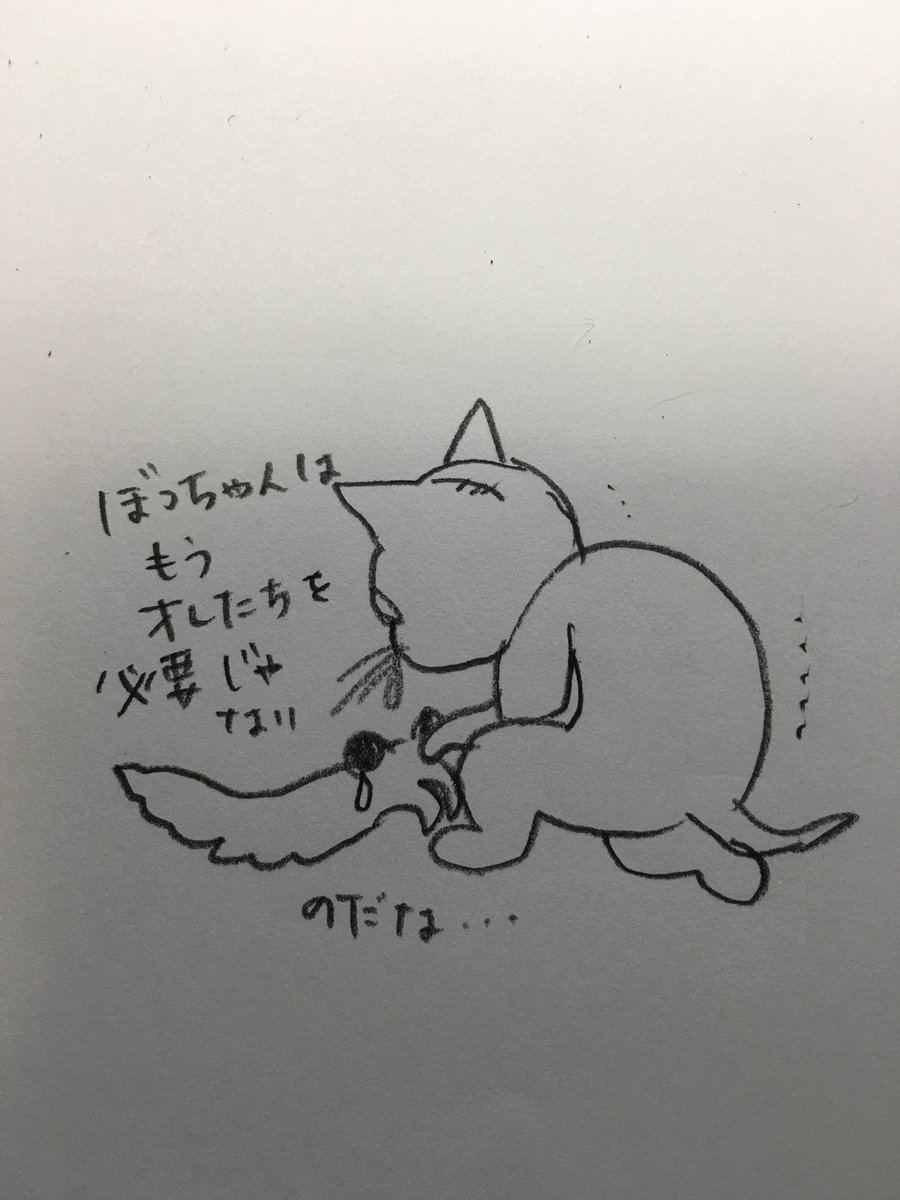 ぼっちゃんは
もう
オレたちを
必要じゃ
ない
のだな...